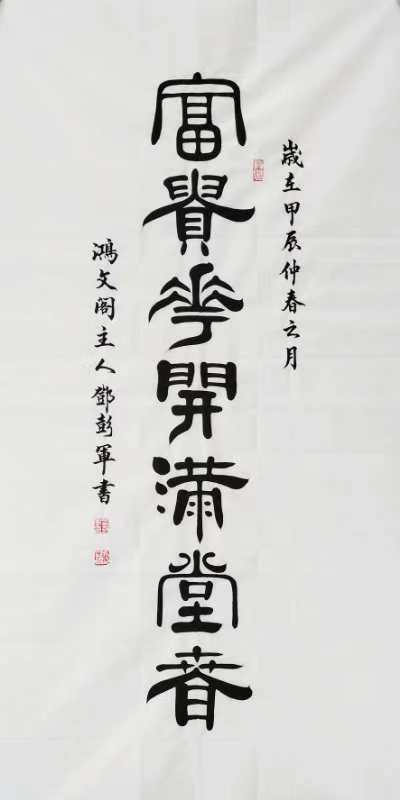 歲在甲辰仲春之月
富貴花開滿堂春
鴻文閣主人鄧彭軍書